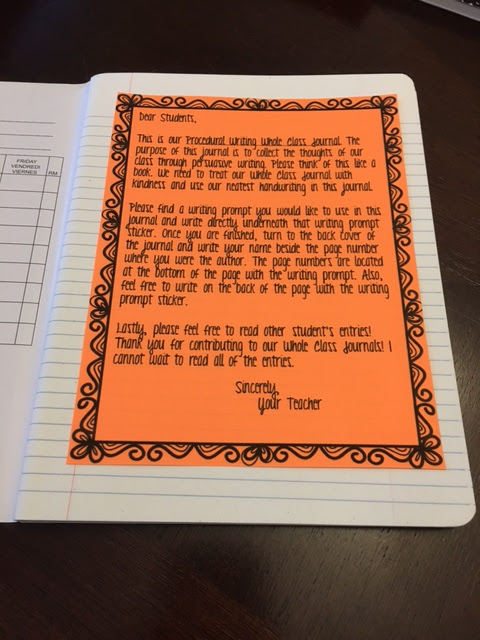 FRIDAY
VENDREDI
VIERNES
RM
Dear Students,
This is our Procedural Writing Whole Class Journal. The
purpose of this journal is to collect the thoughts of our
class through persuasive writing. Please think of this like a
book. We need to treat our Whole Class Journal with
kindness and use our neatest handwriting in this journal.
Please find a writing prompt you would like to use in this
journal and write directly underneath that writing prompt
sticker. Once you are finished, turn to the back cover of
the journal and write your name beside the page number
where you were the author. The page numbers are located
at the bottom of the page with the writing prompt. Also,
feel free to write on the back of the page with the writing
prompt sticker.
Lastly, please feel free to read other student's entries!
Thank you for contributing to our Whole Class Journals! I
cannot wait to read all of the entries.
Sincerely,
Your Teacher